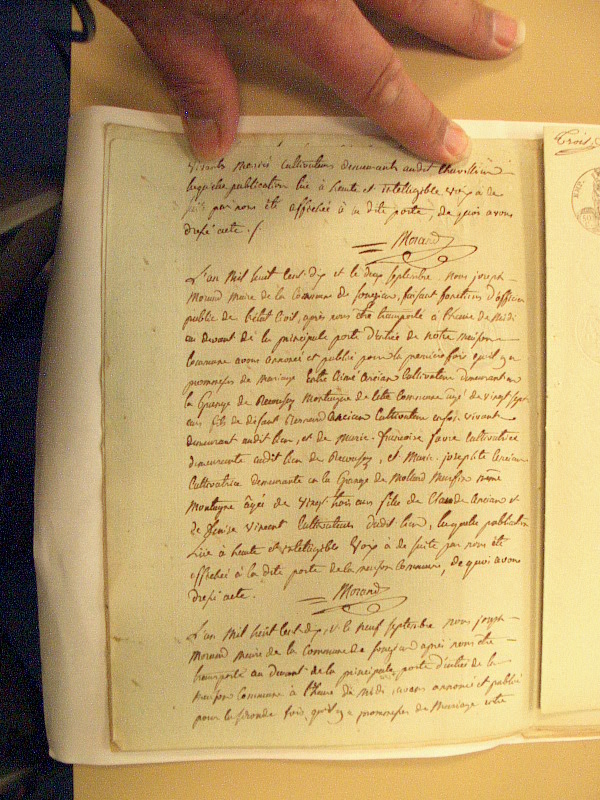 vivants mariés cultivateurs demeurants audit
laquelle publication lue à haute et intelligible voix a de
suite par nous été affichée à la dite porte, de quoi avons
dressé acte. /.
Morand
L'an mil huit cent dix et le deux septembre nous joseph
Morand maire de la Commune de foncine, faisant fonctions d'officier
public de l'état Civil, après nous être transporté à l'heure de Midi
au devant de la principale porte d'entrée de notre maison
Commune avons annoncé et publié pour la première fois qu'il y a
promesses de mariage entre Aimé Cultivateur demeurant en
la Grange de Montagne de cette Commune âgé de vingt sept
ans fils de défunt Cultivateur en son vivant
demeurant audit lieu, et de Marie françoise favre cultivatrice
demeurante audit lieu de et Marie josephte
Cultivatrice demeurante en la Grange du même
Montagne âgée de vingt trois ans fille de Claude et
de Denise Vincent Cultivateurs dudit lieu, laquelle publication
Lue à haute et intelligible Voix a de suite par nous été
affichée à la dite porte de la maison Commune, de quoi avons
dressé acte.
Morand
L'an mil huit cent dix, et le neuf septembre nous joseph
Morand maire de la Commune de après nous être
transporté au devant de la principale porte d'entrée de la
maison Commune à l'heure de midi avons annoncé et publié
pour la seconde fois, qu'il y a promesses de Mariage entre
Trois